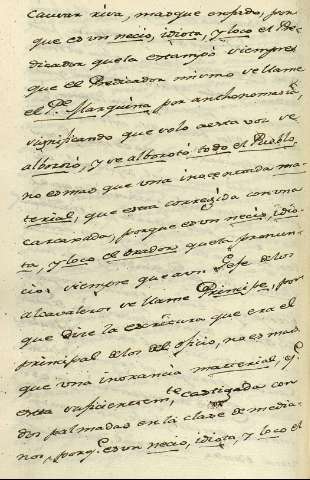 causar risa, mas que enfado, por
que es un necio, idiota, y loco el Pre-
dicador que la estampó siempre
que el Predicador mismo se llame
el Pe. Marquina por anthonomasia,
significando que solo a esta voz se
alborotó, y se alborotó todo el Pueblo,
no es mas que una inocentada ma-
terial, que esta corregida con una
carcaxada, porque es un necio, idio-
ta, y loco el orador que la pronun-
cio: siempre que a un Gefe de los
alcavaleros se llame Principe, por
que dice la escritura que era el
principal de los del oficio, no es mas
que una inorancia material, q.
esta suficientemte. castigada con
dos palmadas en la clase de media-
nos, porq. es un necio, idiota, y loco el